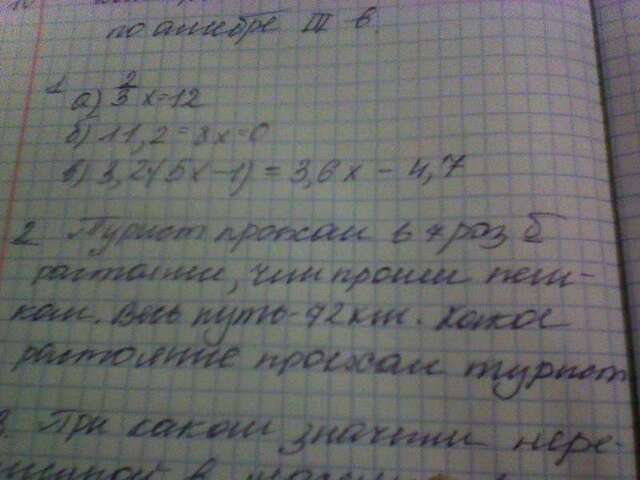 по алгебре III в.
1 а) 2/3 x=12
б) 11,2-3x=0
в) 3,2(5x-1) = 3,6x - 4,7
2 Турист проехал в 7 раз Б
растояни, чем прошел пеш-
ком. Весь путь-92км. Какое
растояние проехал турист
3. При каком значении пере-
в